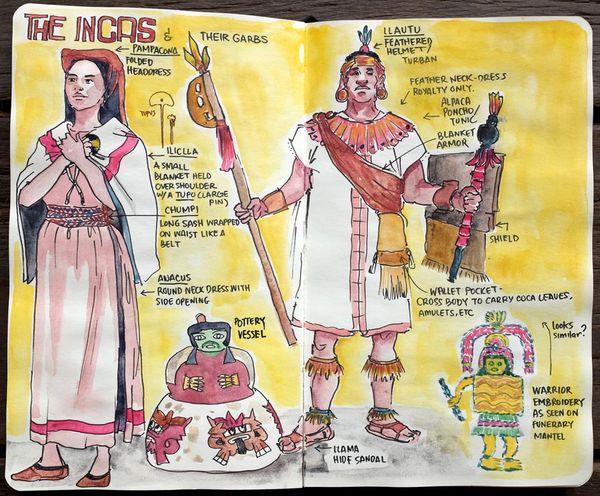 THE INCAS &
THEIR GARBS
PAMPACONA
FOLDED
HEADDRESS
TUPUS
LLICLLA
A SMALL
BLANKET HELD
OVER SHOULDER
W/A TUPO (LARGE
PIN)
CHUMPI
LONG SASH WRAPPED
ON WAIST LIKE A
BELT
ANACUS
ROUND NECK DRESS WITH
SIDE OPENING
POTTERY
VESSEL
LLAUTU
FEATHERED
HELMET/
TURBAN
FEATHER NECK-DRESS
ROYALTY ONLY.
ALPACA
PONCHO/
TUNIC
BLANKET
ARMOR
SHIELD
WALLET POCKET-
CROSS BODY TO CARRY COCA LEAVES,
AMULETS, ETC
looks
similar?
WARRIOR
EMBROIDERY
AS SEEN ON
FUNERARY
MANTEL
LLAMA
HIDE SANDAL